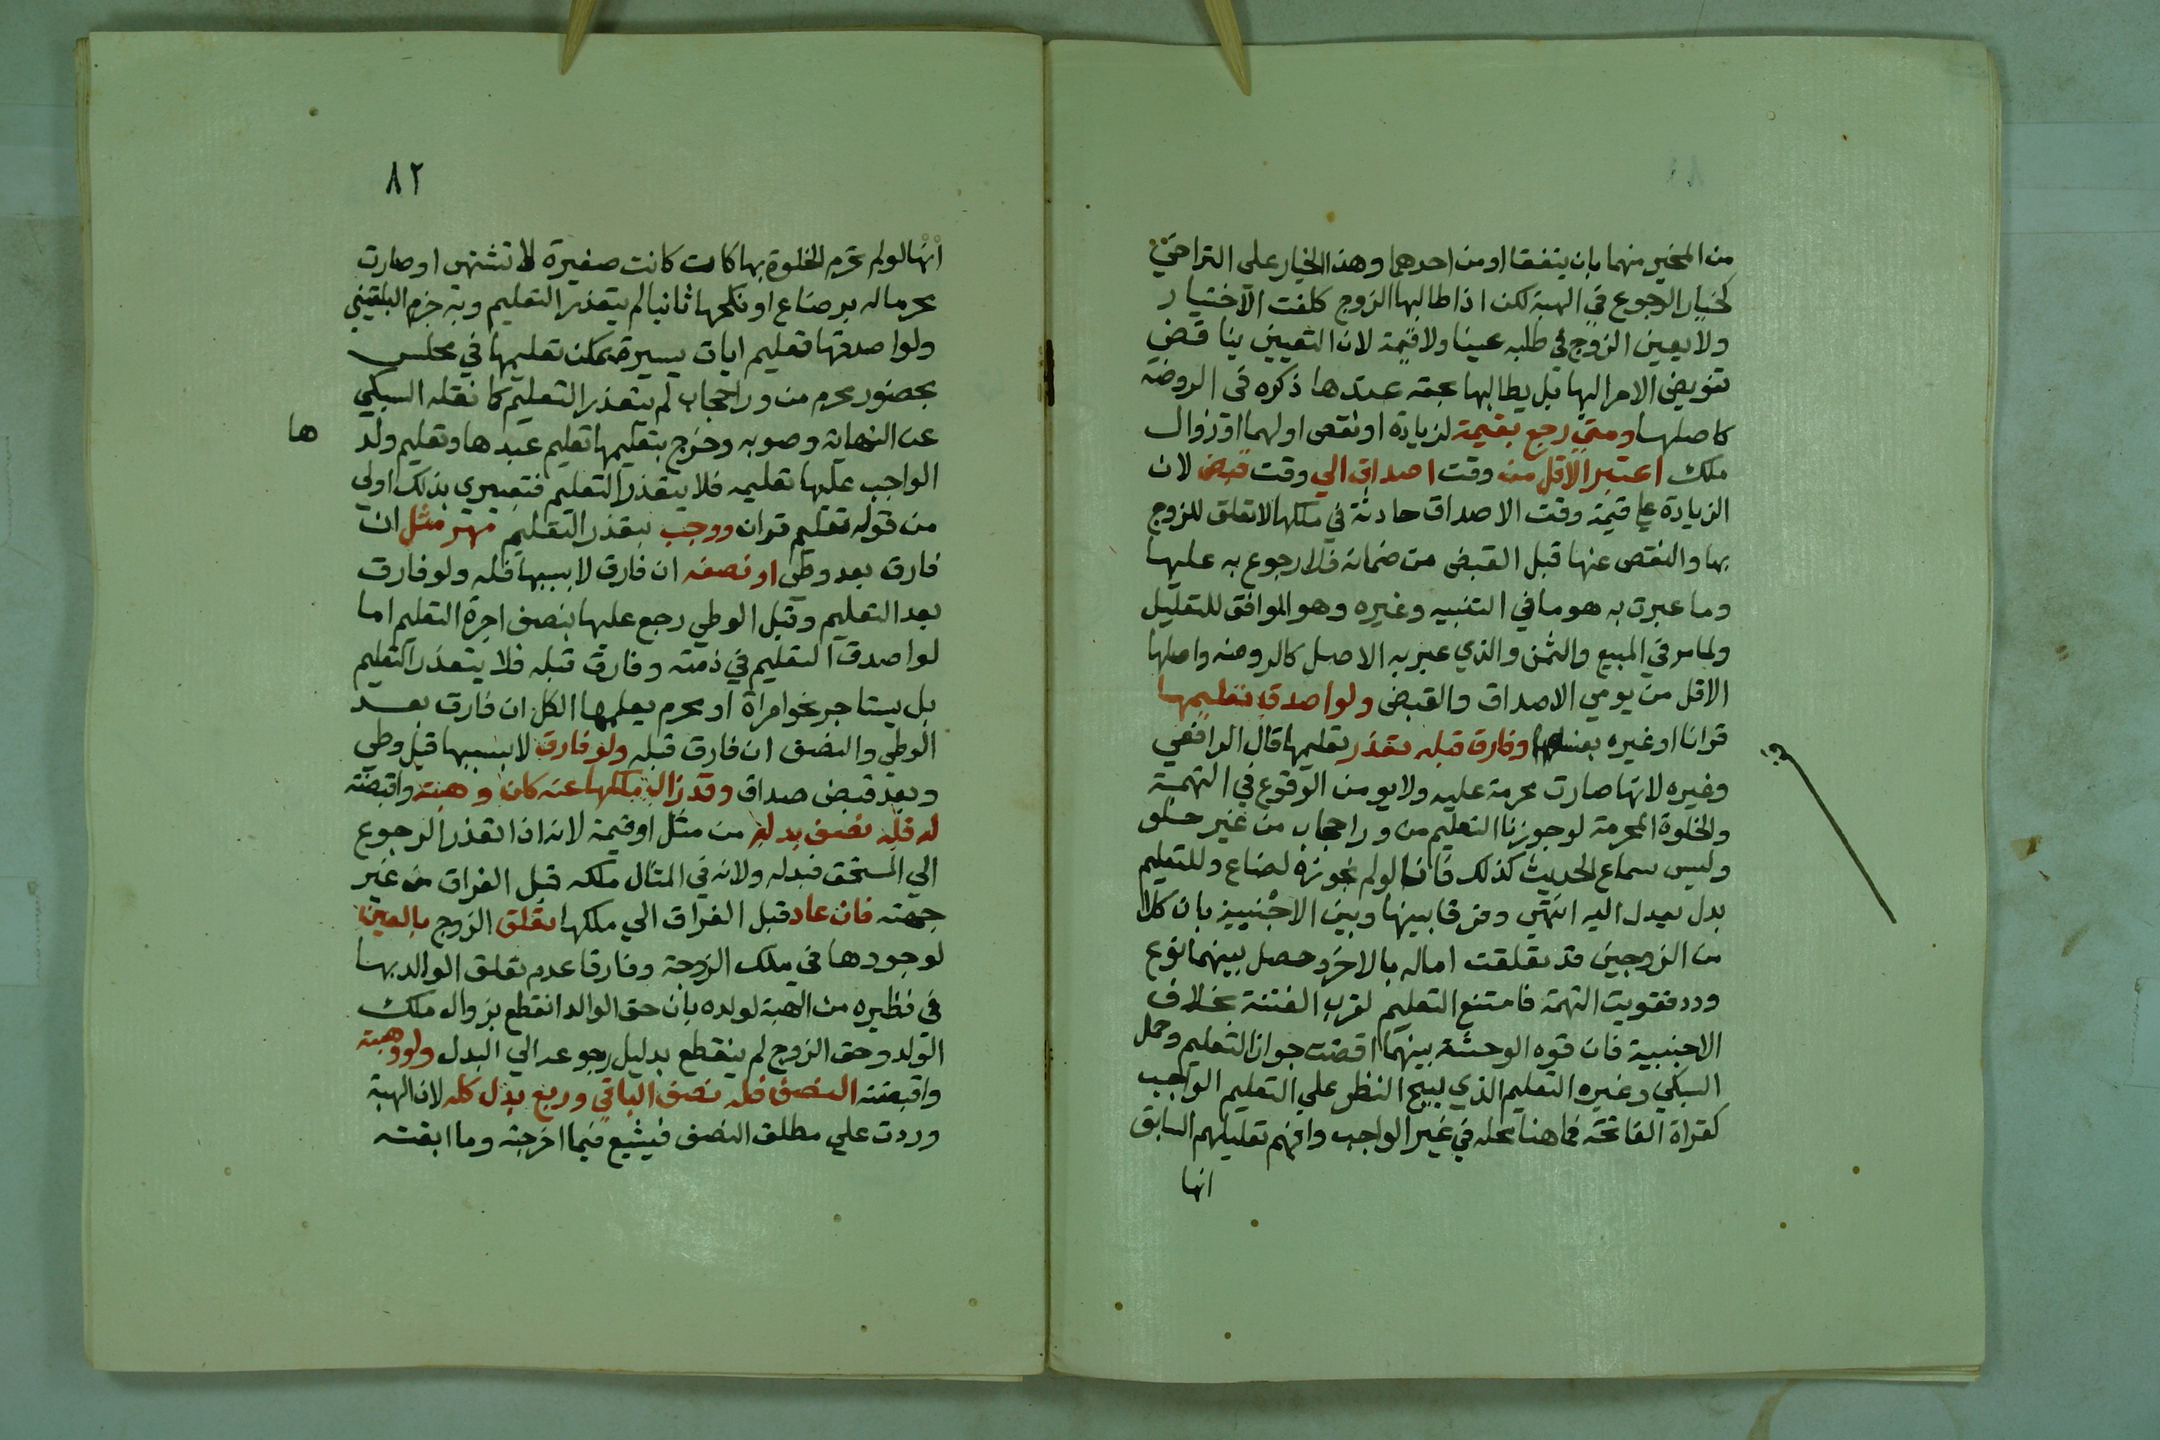 من المخير منهما بان يتفقا او من احدهما وهذا الخيار على التراخي
كخيار الرجوع في الهبة لكن اذا طالبها الزوج كلفت الاختيار
ولا يعين الزوج في طلبه عينا ولا قيمة لان التعيين يناقض
تفويض الامر اليها بل يطالبها بحقه عندها ذكره في الروضة
كاصلها ومتى رجع بقيمة لزيادة او نقص او لهما او زوال
ملك اعتبر الاقل من وقت اصداق الي وقت قبض لان
الزيادة علي قيمة وقت الاصداق حادثة في ملكها لا تعلق للزوج
بها والنقص عنها قبل القبض من ضمانه فلا رجوع به عليها
وما عبرت به هو ما في التنبيه وغيره وهو الموافق للتعليل
ولما مر في المبيع والثمن والذي عبر به الاصل كالروضة واصلها
الاقل من يومي الاصداق والقبض ولو اصدق تعليمها
قرانا او غيره بنفسه وفارق قبله تعذر تعليمها قال الرافعي
وغيره لانها صارت محرمة عليه ولا يومن الوقوع في التهمة
والخلوة المحرمة لو جوزنا التعليم من ورا حجاب من غير خلو
وليس سماع الحديث كذلك فانا لو لم نجوزه لضاع وللتعليم
بدل يعدل اليه انتهي وفرقا بينها وبين الاجنبية بان كلا
من الزوجين قد تعلقت اماله بالاخر وحصل بينهما نوع
ودد فقويت التهمة فامتنع التعليم لقرب الفتنة بخلاف
الاجنبية فان قوه الوحشة بينهما اقضت جواز التعليم وحمل
السبكي وغيره التعليم الذي يبيح النظر علي التعليم الواجب
كقراة الفاتحة فما هنا محله في غير الواجب وافهم تعليلهم السابق
انها
٨٢
انها لو لم تحرم الخلوة بها كانت صغيرة لا تشتهي او صارت
محرما له برضاع او نكحها ثانيا لم يتعذر التعليم وبه جزم البلقيني
ولو اصدقها تعليم ايات يسيرة يمكن تعليمها في مجلس
بحضور محرم من ورا حجاب لم يتعذر التعليم كما نقله السبكي
عن النهاية وصوبه وخرج بتعليمها تعليم عبدها وتعليم ولد
ها
الواجب عليها تعليمه فلا يتعذر التعليم فتعبيري بذلك اولي
من قوله تعليم قران ووجب بتعذر التعليم مهر مثل ان
فارق بعد وطي او نصفه ان فارق لا بسببها قبله ولو فارق
بعد التعليم وقبل الوطي رجع عليها بنصف اجرة التعليم اما
لو اصدق التعليم في ذمته وفارق قبله فلا يتعذر التعليم
بل يستاجر نحو امراة او محرم يعلمها الكل ان فارق بعد
الوطي والنصف ان فارق قبله ولو فارق لا بسببها قبل وطي
وبعد قبض صداق وقد زال ملكها عنه كان وهبته واقبضته
له فله نصف بدله من مثل او قيمة لانه اذا تعذر الرجوع
الي المستحق فبدله ولانه في المثال ملكه قبل الفراق من غير
جهته فان عاد قبل الفراق الي ملكها تعلق الزوج بالعين
لوجودها في ملك الزوجة وفارقا عدم تعلق الوالد بها
في نظيره من الهبة لولده بان حق الوالد انقطع بزوال ملك
الولد وحق الزوج لم ينقطع بدليل رجوعه الي البدل ولو وهبته
واقبضته النصف فله نصف الباقي وربع بدل كله لان الهبة
وردت علي مطلق النصف فيشيع فيما اخرجته وما ابقته